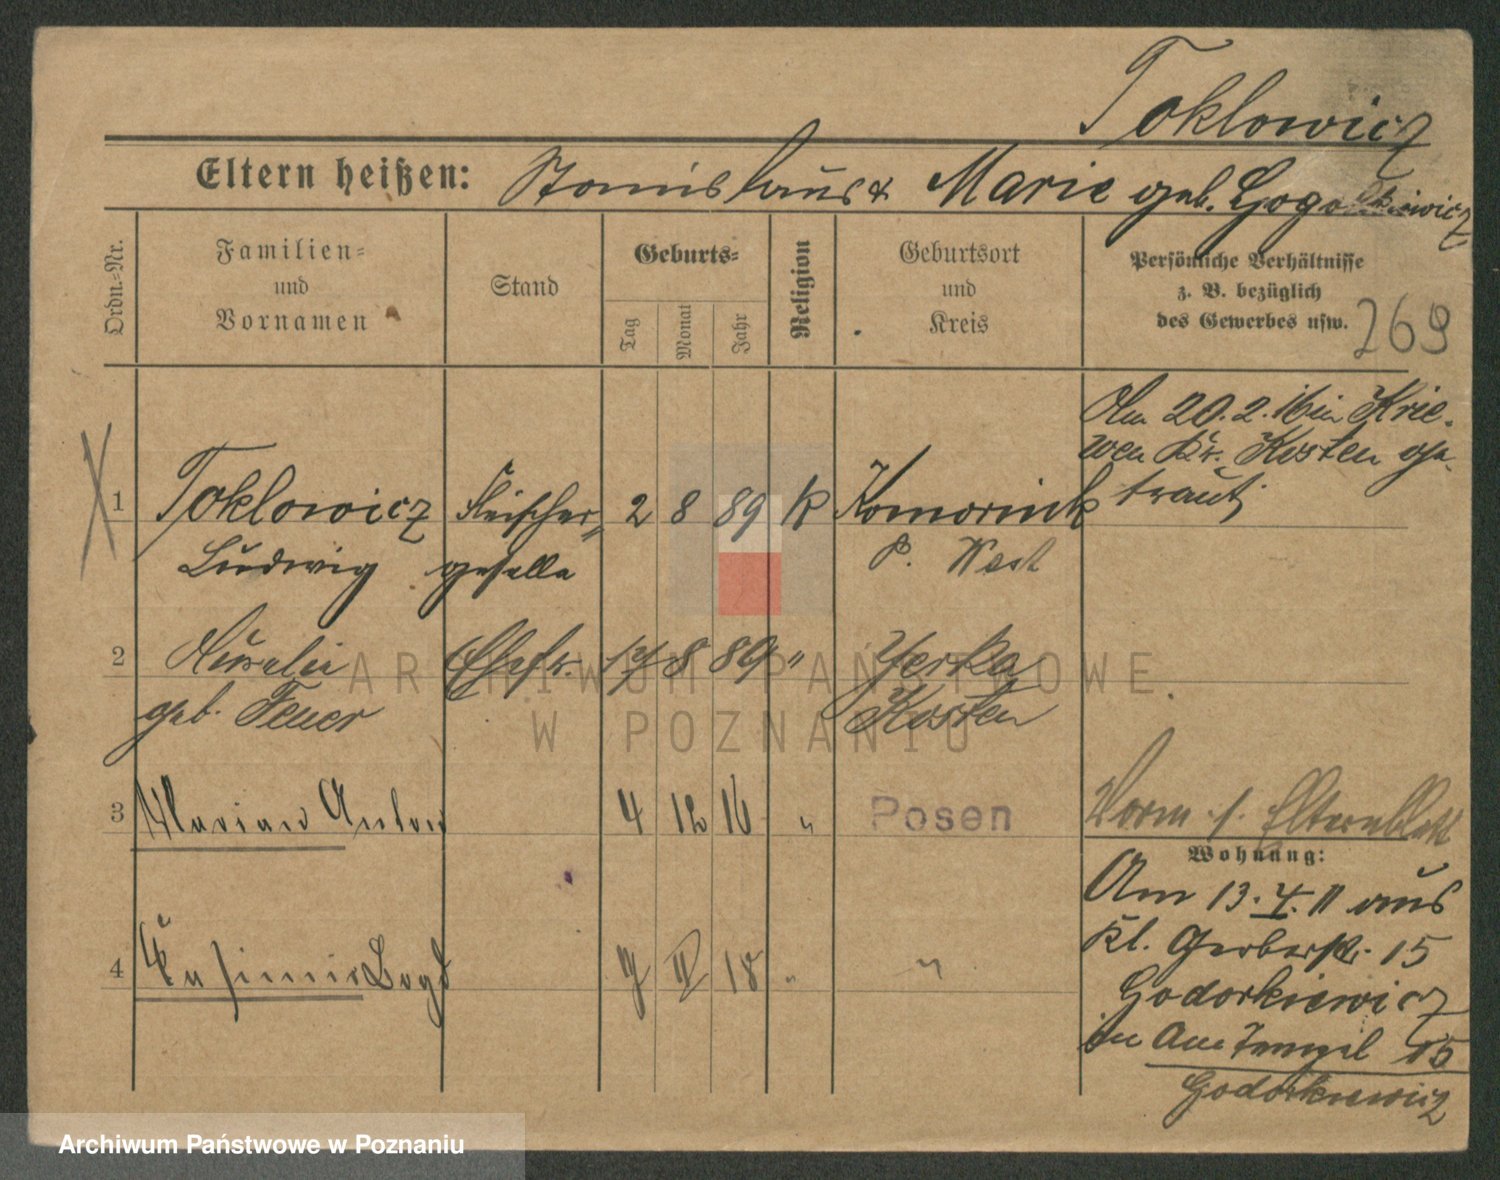 Toklowicz
Eltern heißen: Stanislaus & Marie geb.
Ordn.=Nr.
Familien=
und
Vornamen
Stand
Geburts=
Tag
Monat
Jahr
Religion
Geburtsort
und
Kreis
Persönliche Verhältnisse
z. B. bezüglich
des Gewerbes usw.
269
Am 20.2.16 in Krie-
wen Kr. Kosten ge-
traut.
1 Toklowicz Fleischer= 2 8 89 K Komornik
Ludwig geselle P. West
2 Aurelie Ehefr. 17 8 89 " Jerka
geb. Feuer Kosten
3 Marian Anton 4 12 16 " Posen
Vorm. s. Elternblatt
4 Kasimir 9 II 18 " "
Wohnung:
Am 13. 4. 11 aus
Kl. Gerberstr. 15
Godorkiewicz
in Am 15
Godorkiewicz
ARCHIWUM PAŃSTWOWE
W POZNANIU
Archiwum Państwowe w Poznaniu